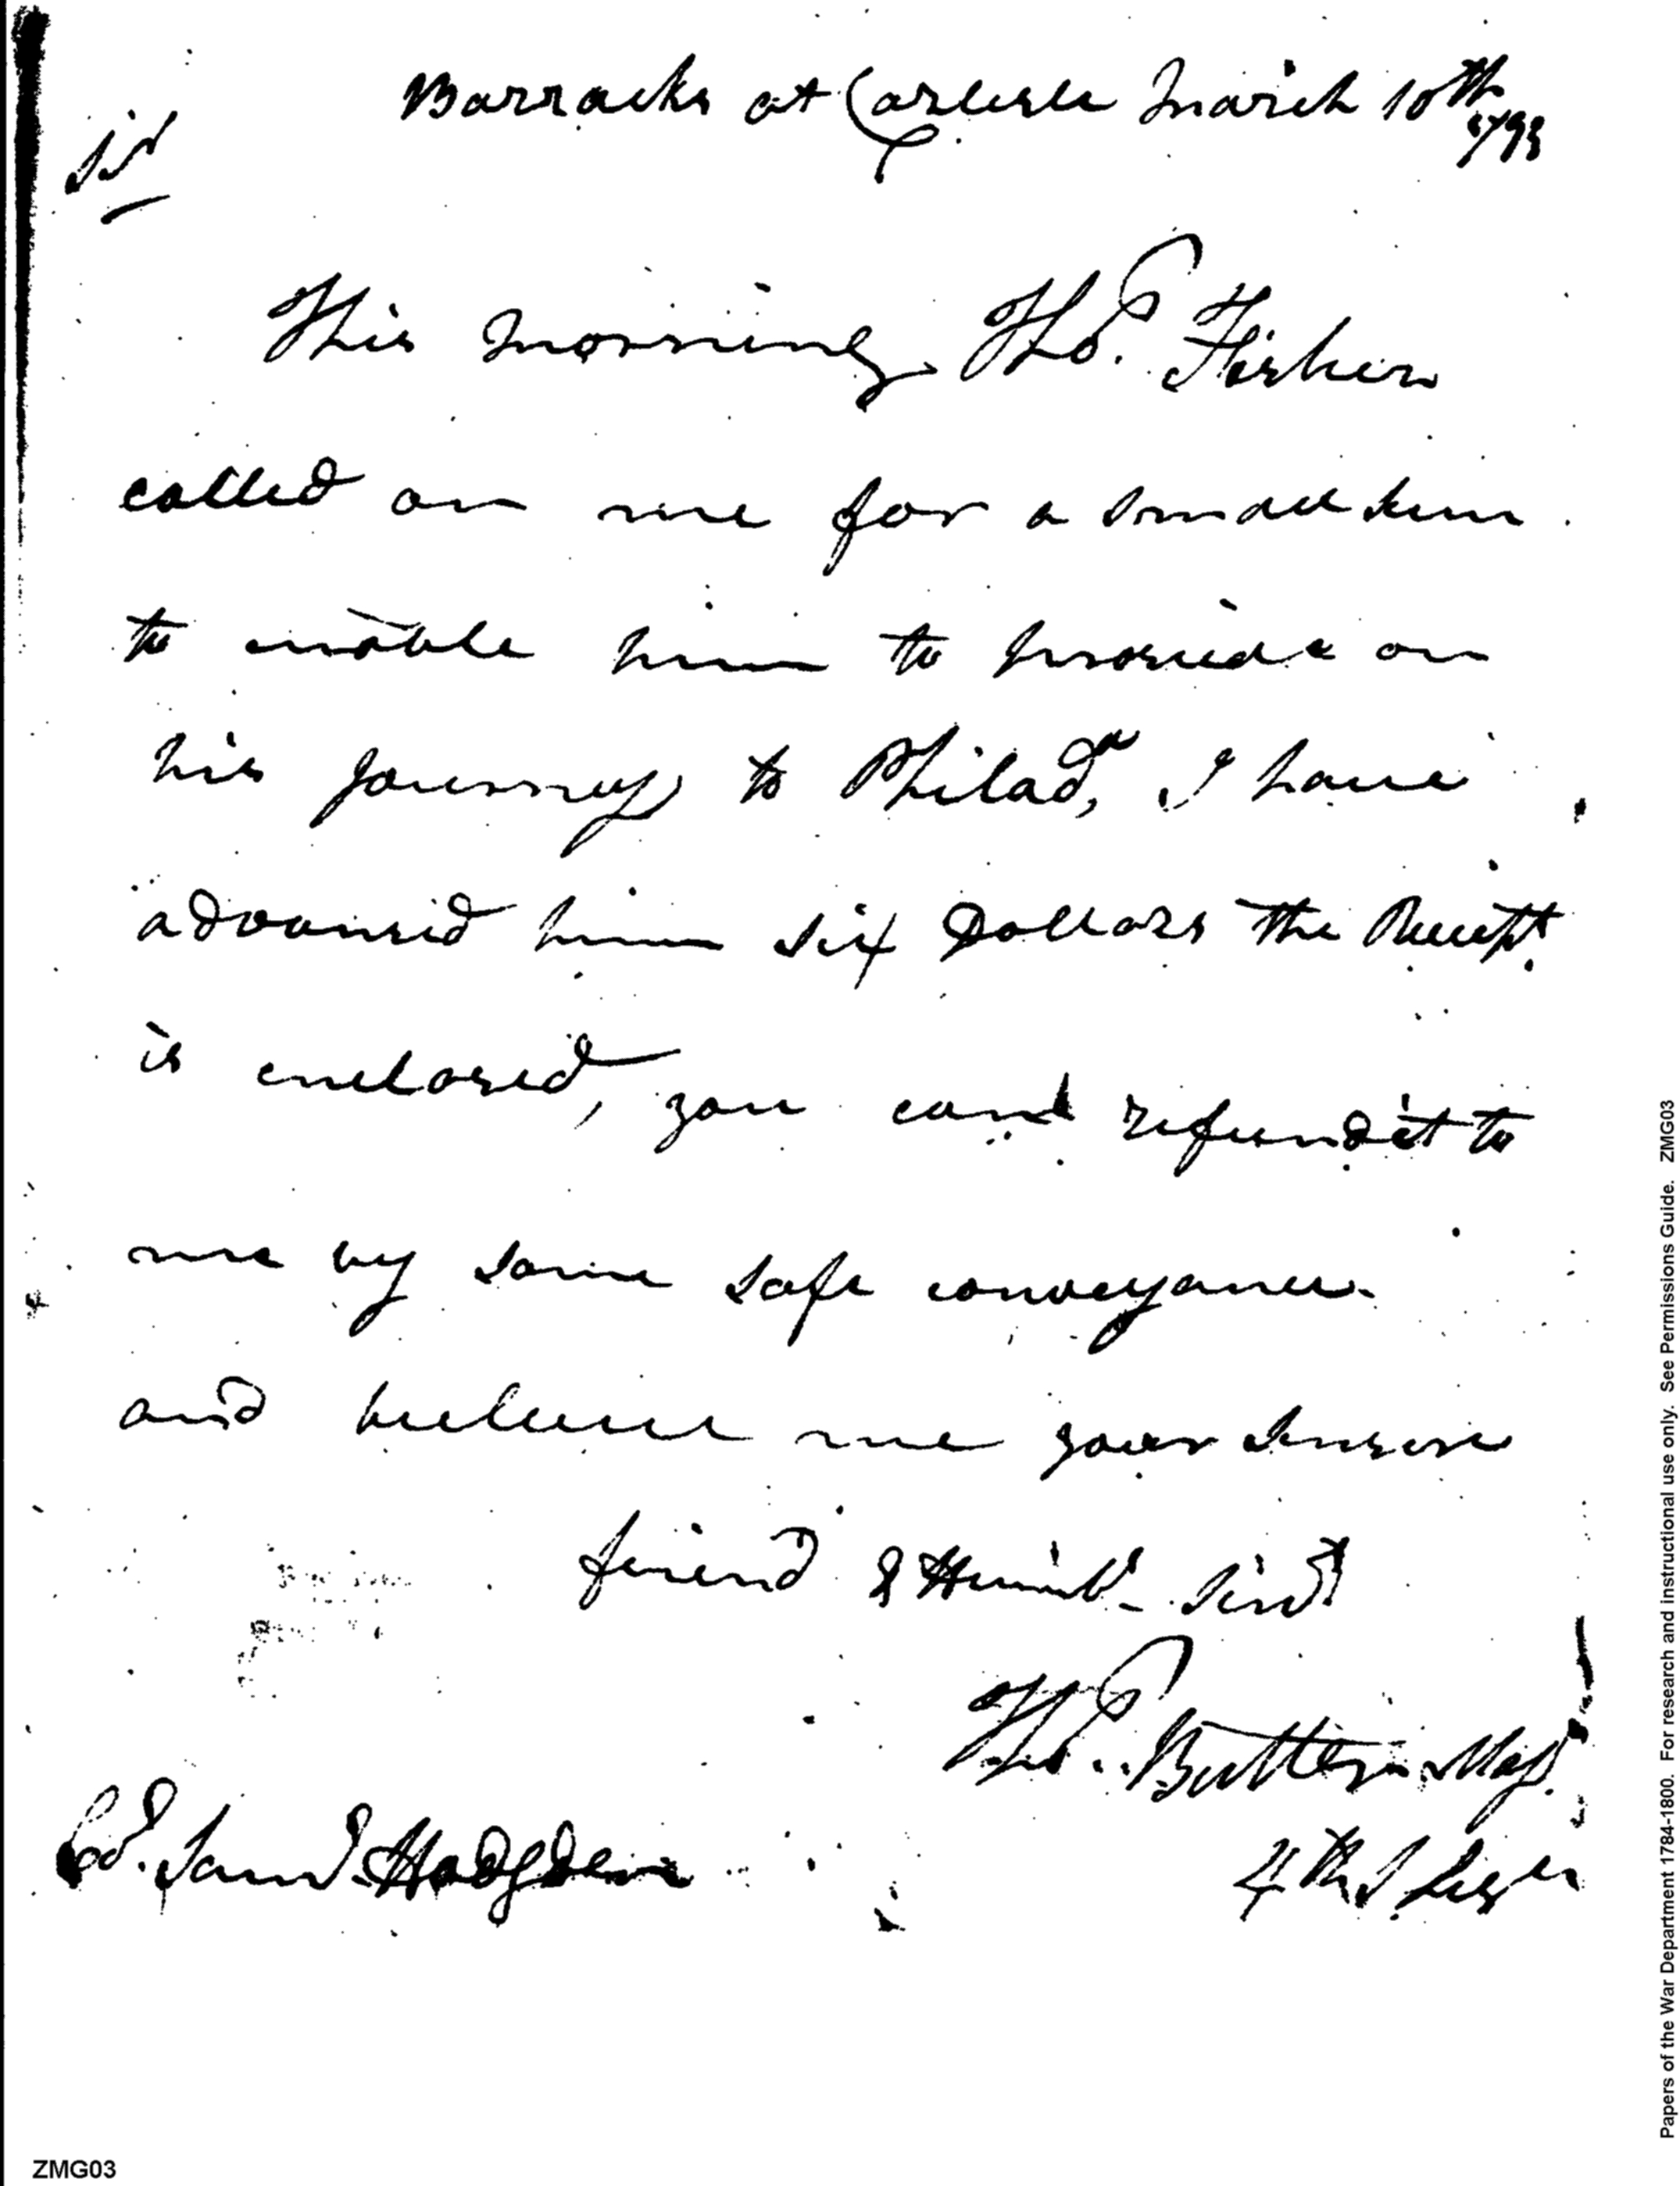 Barracks at Carlisle March 10th
1793
Sir
This morning Thos. Fisher
called on me for a small sum
to enable him to proceede on
his Journey to Philada, I have
advanced him six Dollars the Receipt
is enclosed, you can refund it to
me by some safe conveyance
and believe me your sincere
friend & Humbl. Servt
Thos. Butler Majr
4th S Legn
Col. Saml. Hodgden
ZMG03
Papers of the War Department 1784-1800. For research and instructional use only. See Permissions Guide. ZMG03